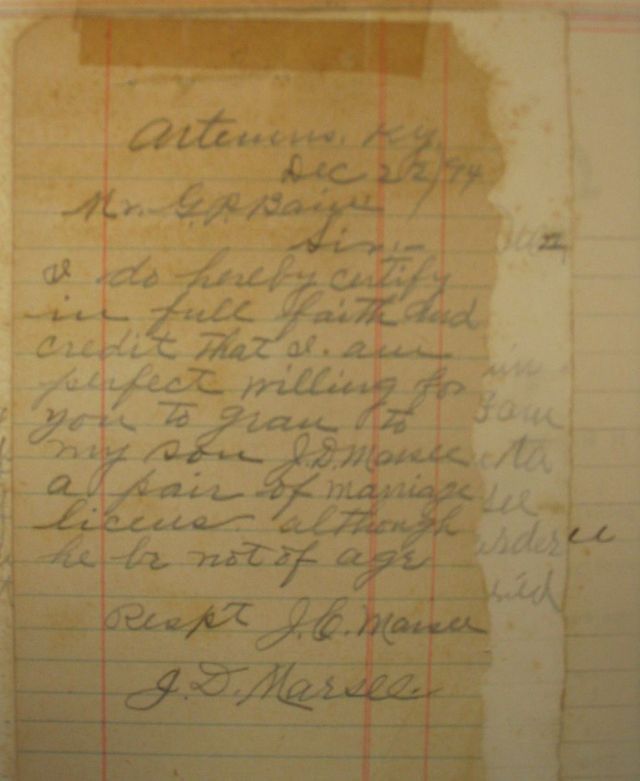 Artemus, Ky.
Dec 22/94
Mr. G. P. Bain
Sir:-
I do hereby certify
in full faith and
credit that I. am
perfect willing for
you to gran to
my son J.D. Marsee
a pair of marriage
licens although
he be not of age
Respt J.C. Marsee
J. D. Marsee.
in